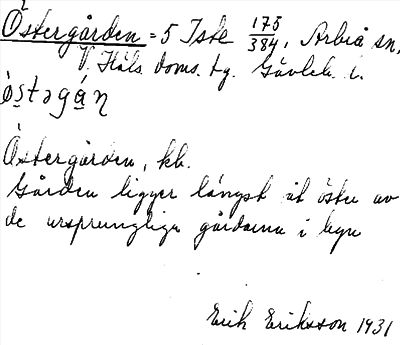 Östergården = 5 Iste 178/384, Arbrå sn,
V. Häls. doms. tg. Gävleb. l.
ö̀stəgáṇ
Östergården, kb.
Gården ligger längst åt öster av
de ursprungliga gårdarna i byn
Erik Eriksson 1931